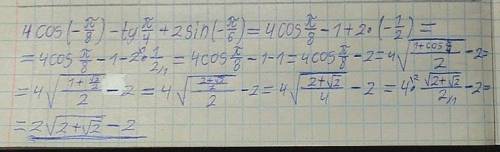 4cos(-π/8) - tg π/4 + 2sin(-π/6) = 4cos π/8 - 1 + 2·(-1/2) =
= 4cos π/8 - 1 - 2·1/2 = 4cos π/8 - 1 - 1 = 4cos π/8 - 2 = 4√((1+cos π/4)/2) - 2 =
= 4√((1+√2/2)/2) - 2 = 4√(((2+√2)/2)/2) - 2 = 4√((2+√2)/4) - 2 = 4·√(2+√2)/2 - 2 =
= 2√(2+√2) - 2